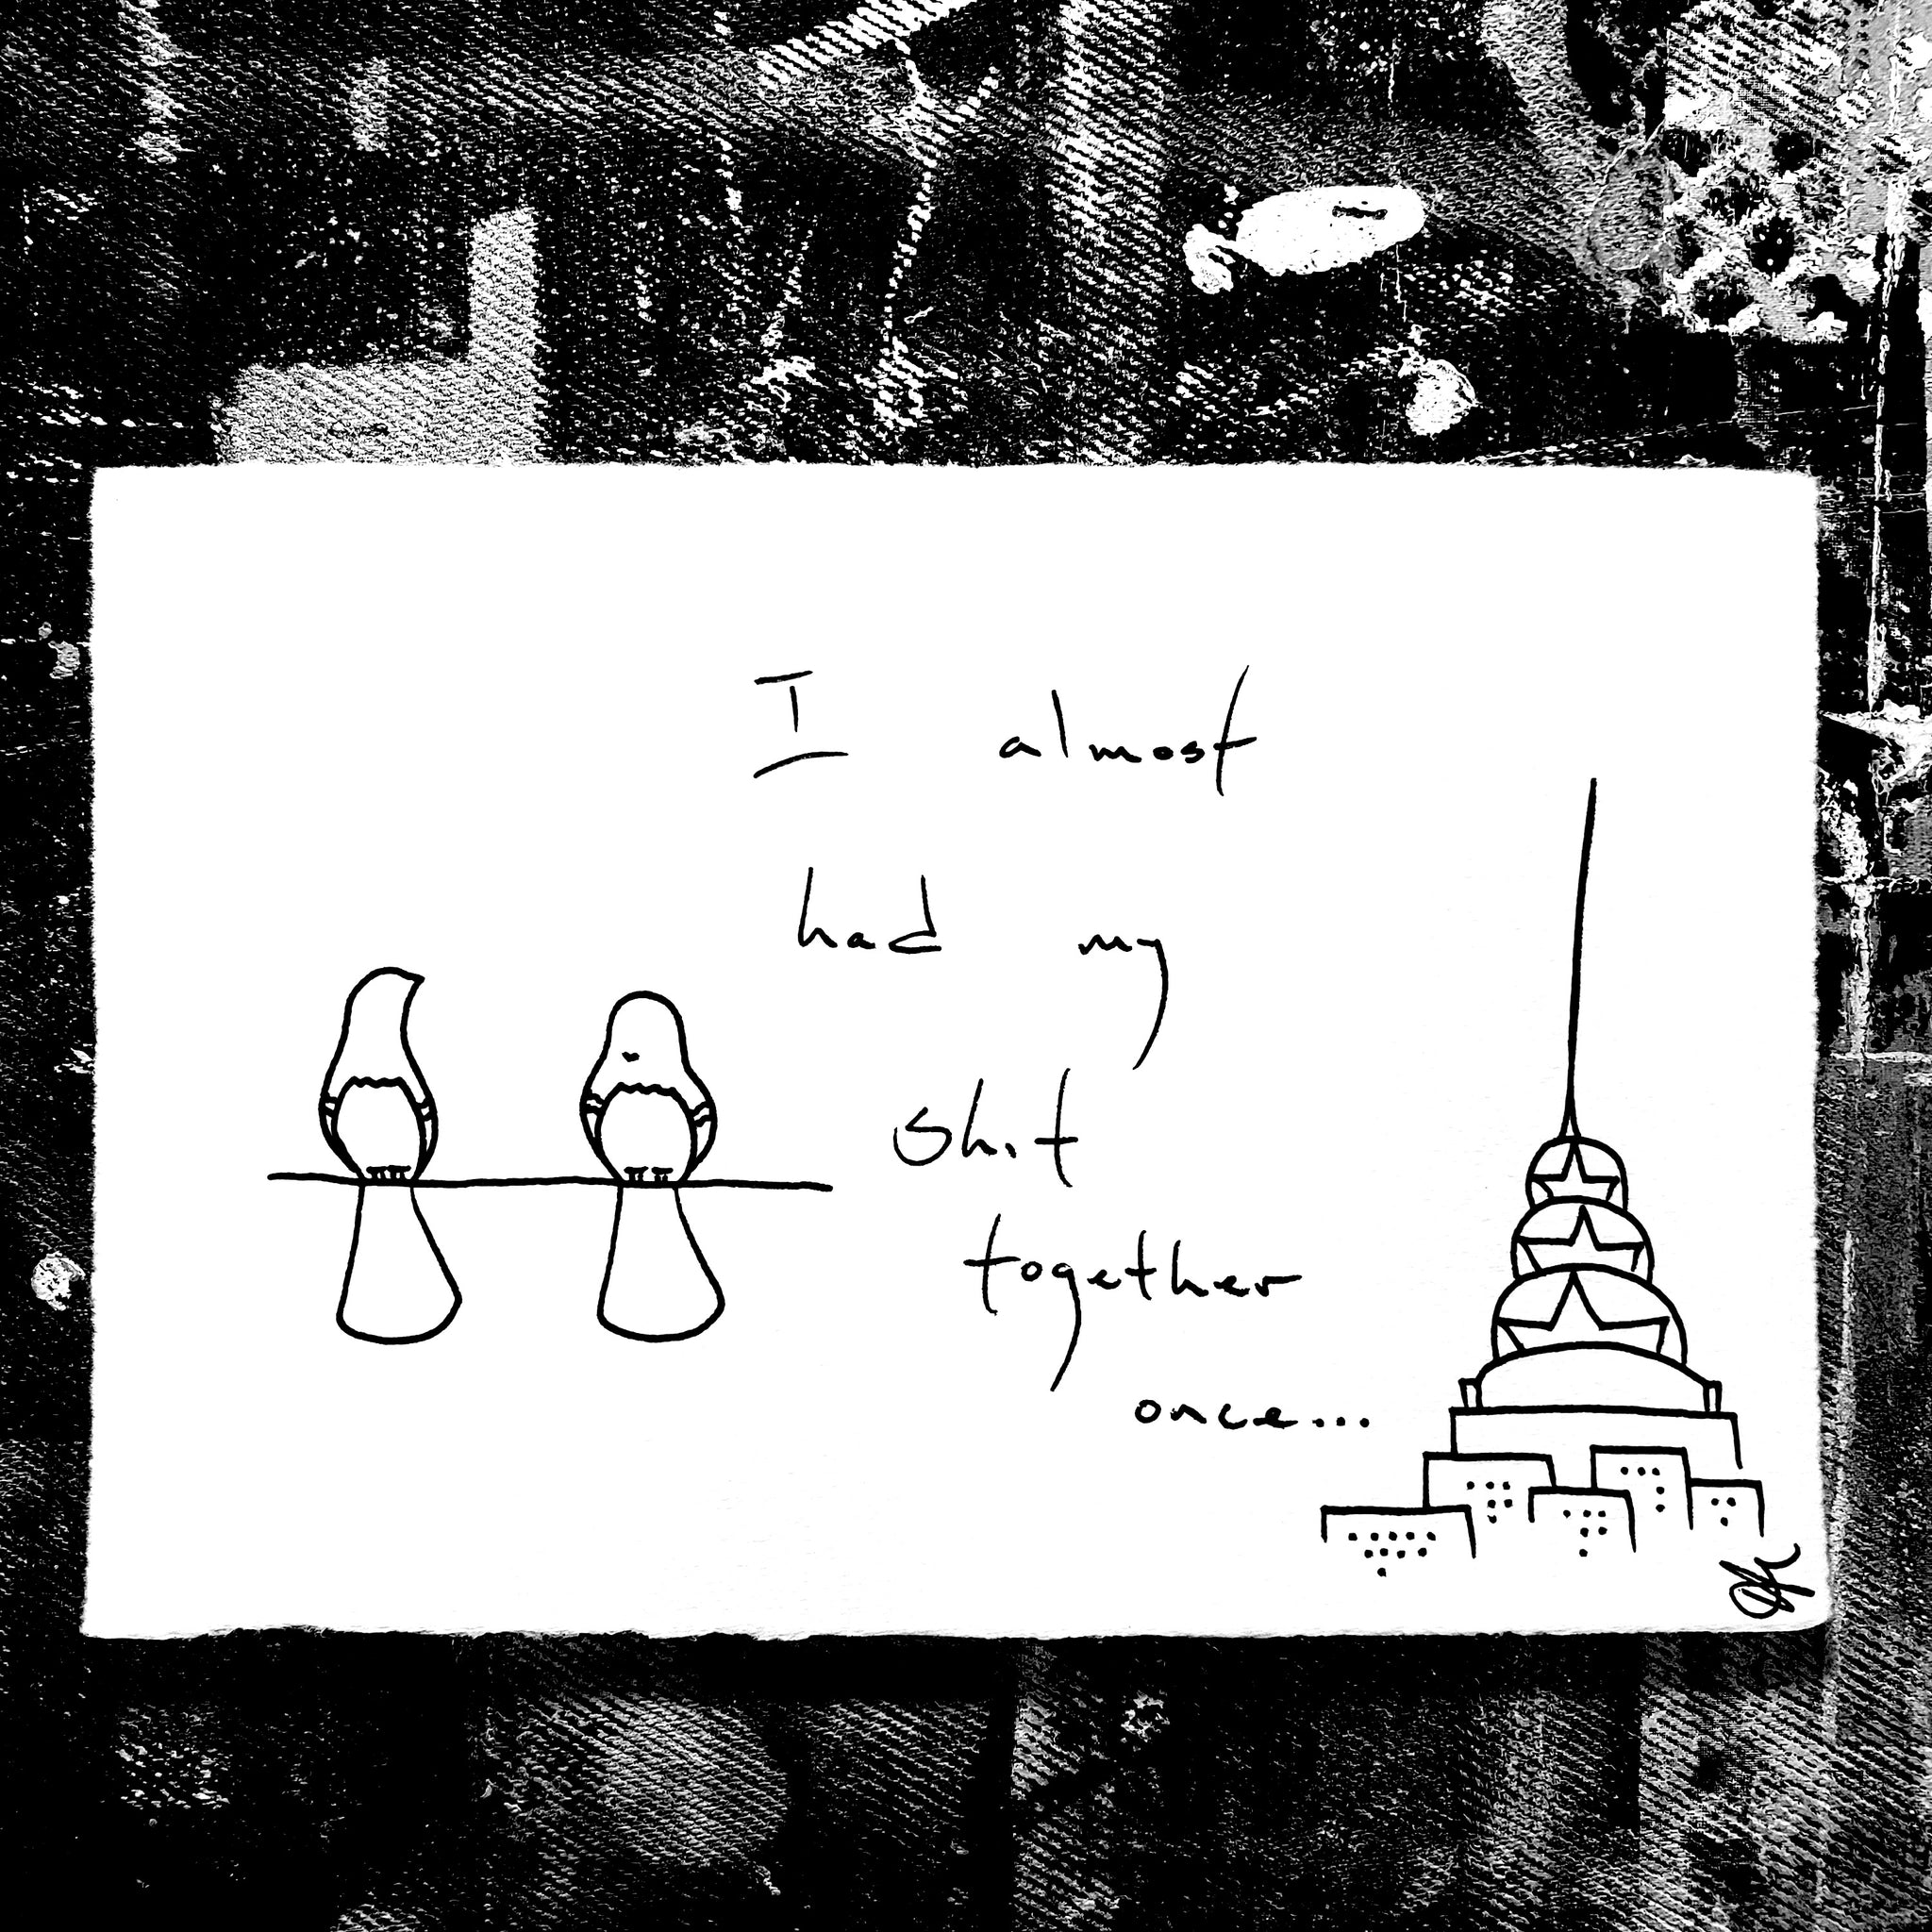 I almost
had my
shit
together
once...